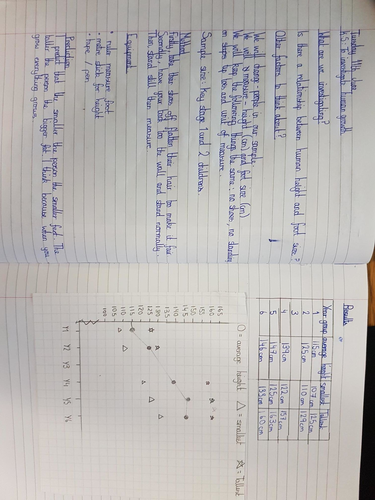 Tuesday 11th June
L.O. To investigate human growth
What are we investigating?
Is there a relationship between human height and foot size?
Other factors to think about?
We will change: people in our sample
We will measure - height (cm) and foot size (cm)
We will keep the following things the same: no shoes, no standing
on steps, tip toes and unit of measure
Sample size: Key stage 1 and 2 children.
Method
Firstly, take their shoes off, flatten their hair to make it fair.
Secondly, have your back on the wall and stand normally.
Then, stand still then measure.
Equipment
• ruler measure foot
• metre stick for height
• tape / pen
Prediction
I predict that the smaller the person the smaller foot. The
taller the person the bigger foot. I think because when you
grow everything grows.
Results
Year group average height smallest Tallest
1 115cm 107cm 125cm
2 125cm 110cm 129cm
3
4 139cm 122cm 157cm
5 147cm 125cm 163cm
6 146cm 133cm 160cm
O = average height △ = smallest ☆ = Tallest
165
160
155
150
145
140
135
130
125
120
115
110
105
Y1 Y2 Y3 Y4 Y5 Y6